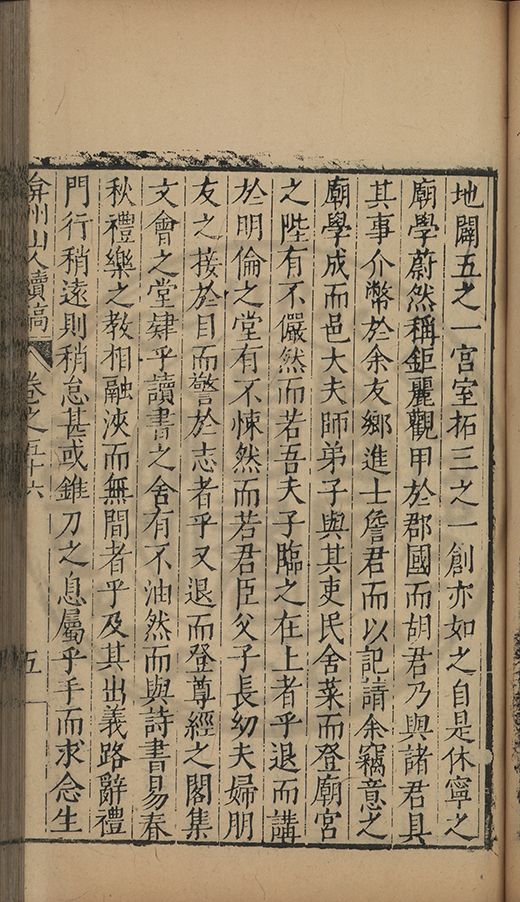 地闢五之一宮室拓三之一創亦如之自是休寧之
廟學蔚然稱鉅麗觀甲於郡國而胡君乃與諸君具
其事介幣於余友鄉進士詹君而以記請余竊意之
廟學成而邑大夫師弟子與其吏民舍菜而登廟宮
之陛有不儼然而若吾夫子臨之在上者乎退而講
於明倫之堂有不悚然而若君臣父子長幼夫婦朋
友之接於目而警於志者乎又退而登尊經之閣集
文會之堂肄乎讀書之舍有不油然而與詩書易春
秋禮樂之教相融浹而無間者乎及其出義路辭禮
門行稍遠則稍怠甚或錐刀之息屬乎手而求念生
弇州山人續稿 卷之五十六 五